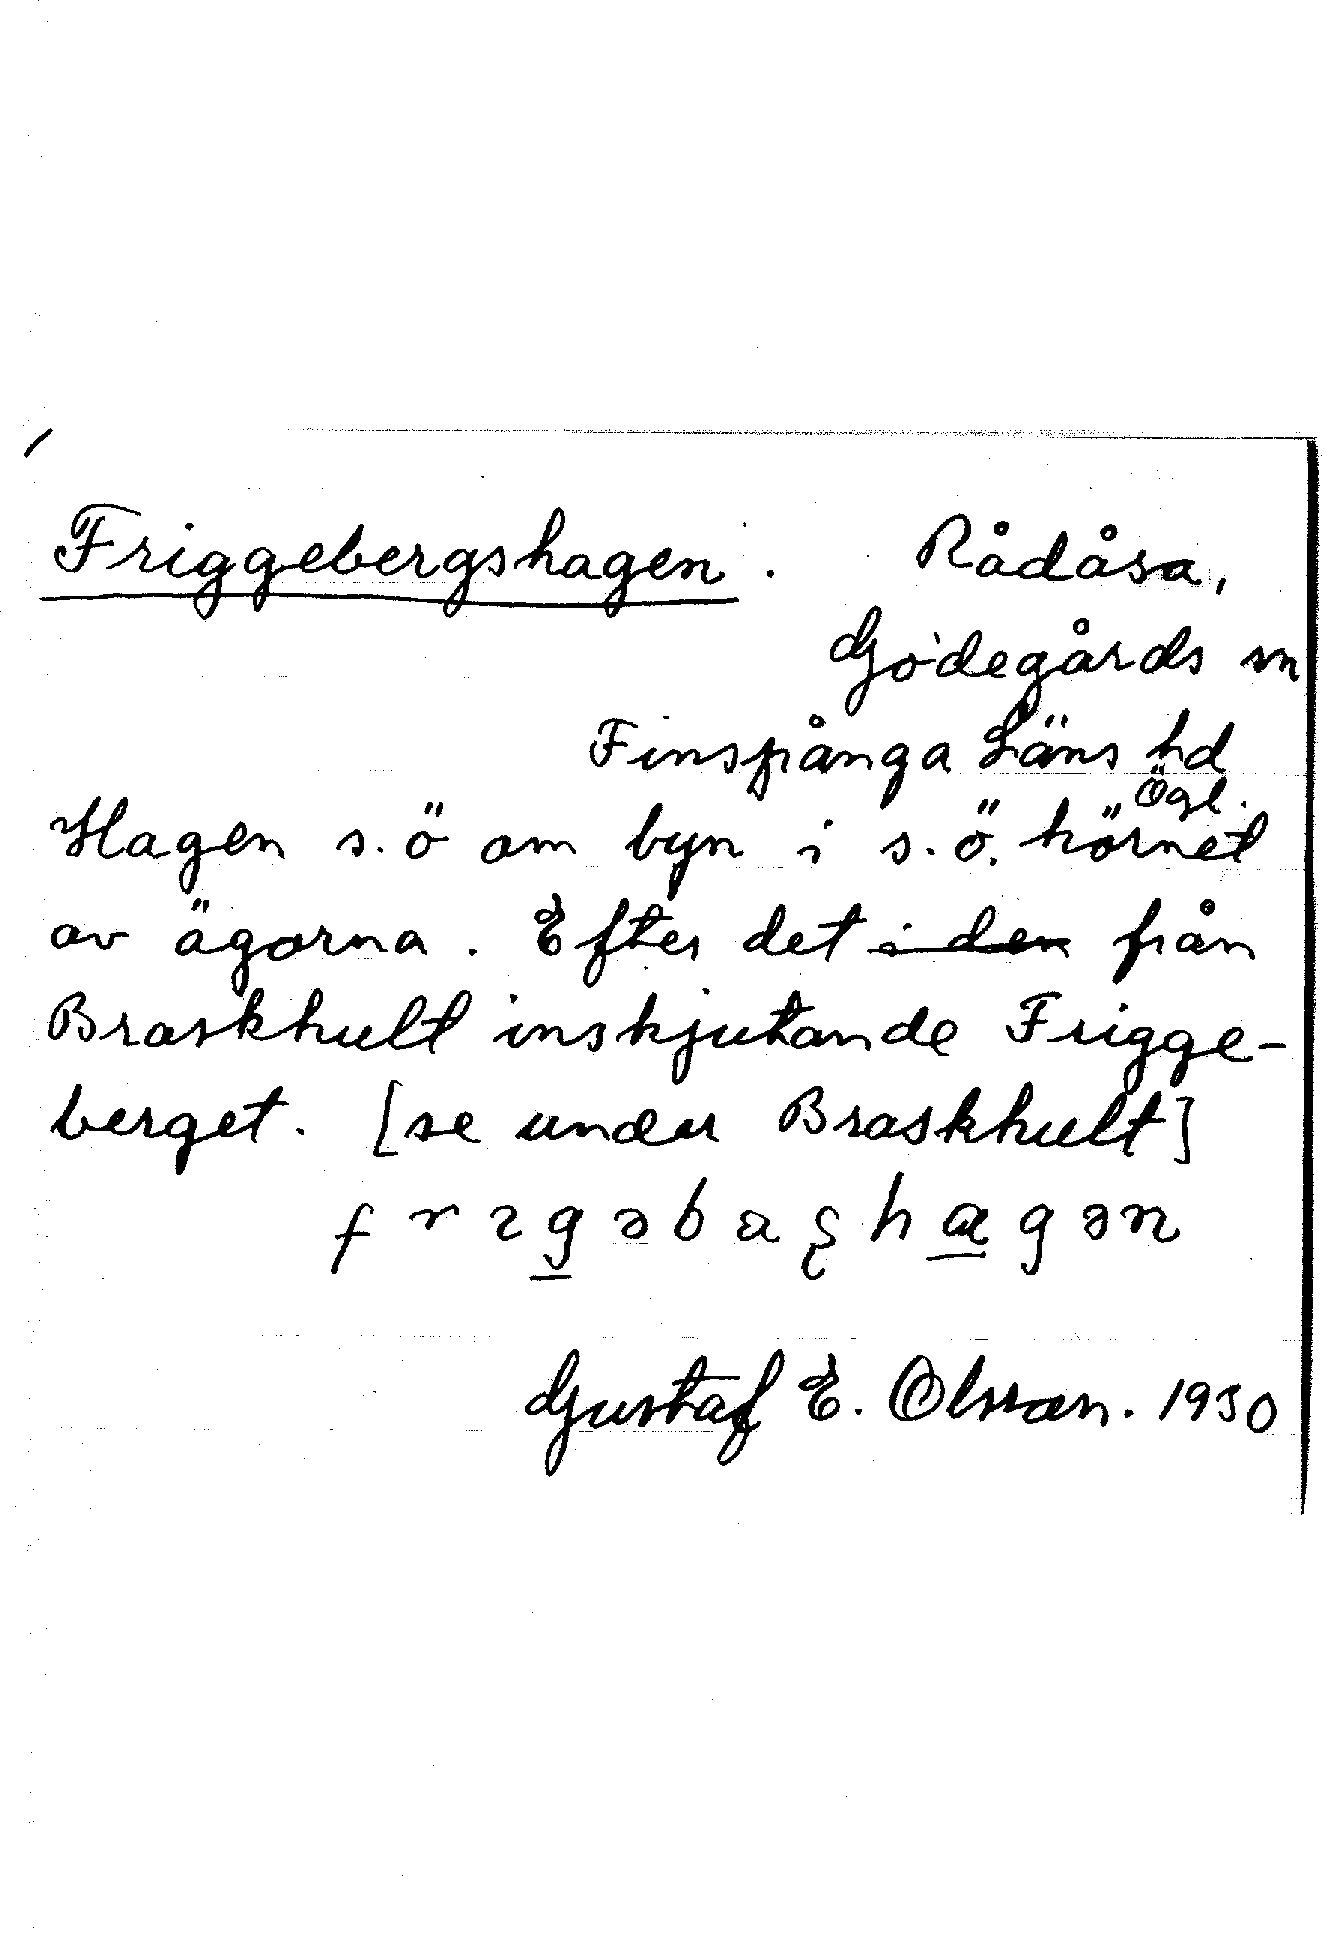 Friggebergshagen. Rådåsa,
Godegårds sn
Finspånga Läns hd
Ögl.
Hagen s.ö om byn i s.ö. hörnet
av ägorna. Efter det i den från
Braskhult inskjutande Frigge-
berget. [se under Braskhult]
Gustaf E. Olsson. 1930